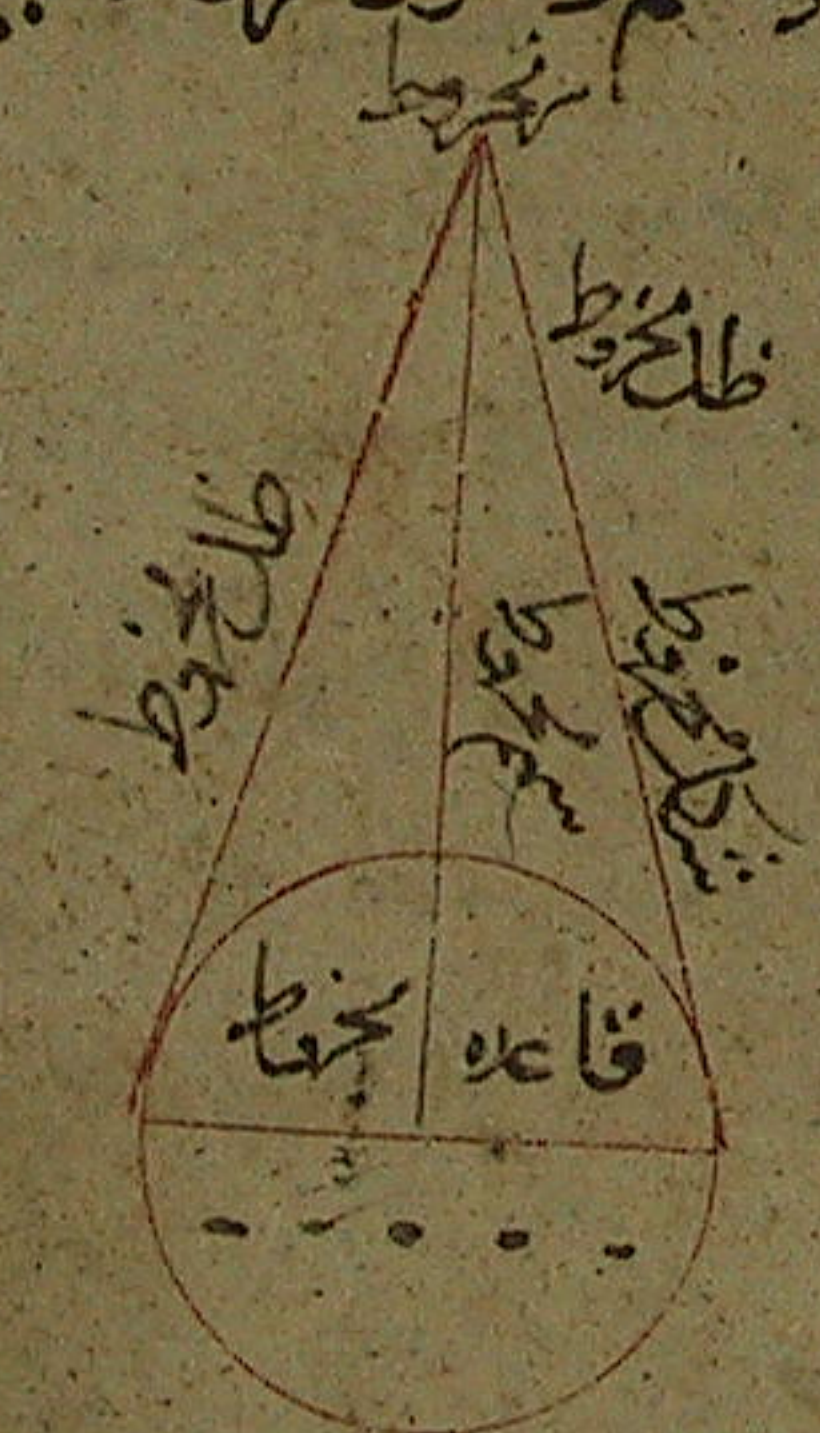 مخروط
ظل مخروط
ظل مخروط
شكل مخروط
سهم مخروط
قاعده مخروط